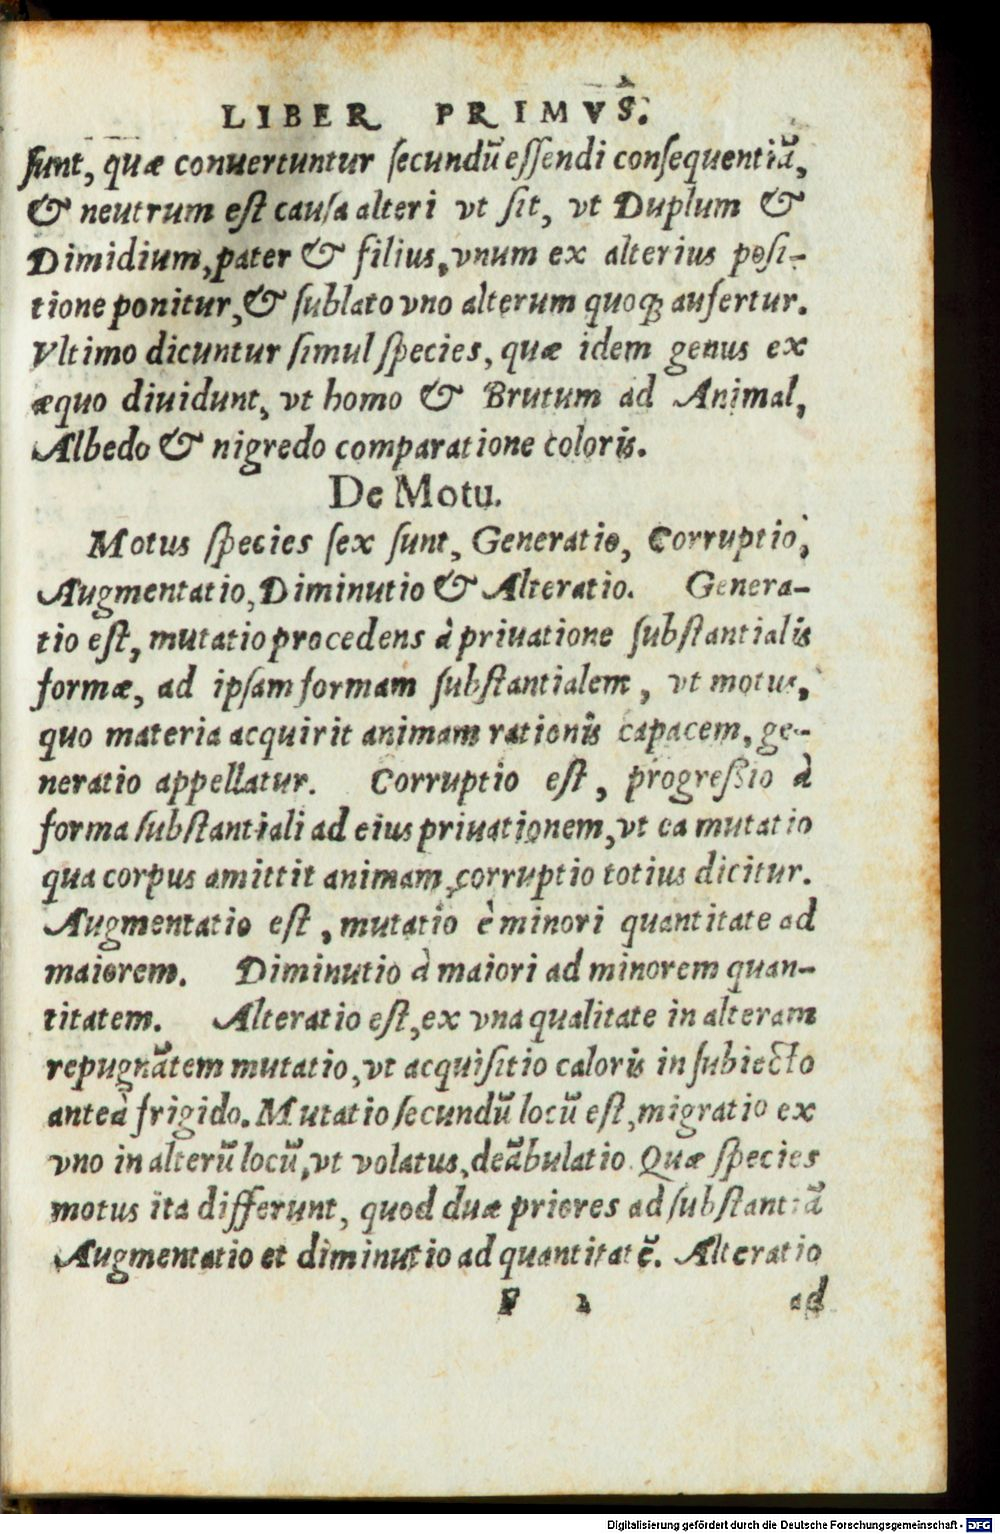 LIBER PRIMVS.
ſunt, quæ conuertuntur ſecundũ eſſendi conſequentiã,
& neutrum eſt cauſa alteri vt ſit, vt Duplum &
Dimidium, pater & filius, vnum ex alterius poſi-
tione ponitur, & ſublato vno alterum quoq; aufertur.
Vltimo dicuntur ſimul ſpecies, quæ idem genus ex
æquo diuidunt, vt homo & Brutum ad Animal,
Albedo & nigredo comparatione coloris.
De Motu.
Motus ſpecies ſex ſunt, Generatio, Corruptio,
Augmentatio, Diminutio & Alteratio. Genera-
tio eſt, mutatio procedens à priuatione ſubſtantialis
formæ, ad ipſam formam ſubſtantialem, vt motus,
quo materia acquirit animam rationis capacem, ge-
neratio appellatur. Corruptio eſt, progreſsio à
forma ſubſtantiali ad eius priuationem, vt ea mutatio
qua corpus amittit animam, corruptio totius dicitur.
Augmentatio eſt, mutatio è minori quantitate ad
maiorem. Diminutio à maiori ad minorem quan-
titatem. Alteratio eſt, ex vna qualitate in alteram
repugnãtem mutatio, vt acquiſitio caloris in ſubiecto
anteà frigido. Mutatio ſecundũ locũ eſt, migratio ex
vno in alterũ locũ, vt volatus, deãbulatio. Quæ ſpecies
motus ita differunt, quod duæ priores ad ſubſtantiã
Augmentatio et diminutio ad quantitatẽ. Alteratio
F 2 ad
Digitalisierung gefördert durch die Deutsche Forschungsgemeinschaft - DFG